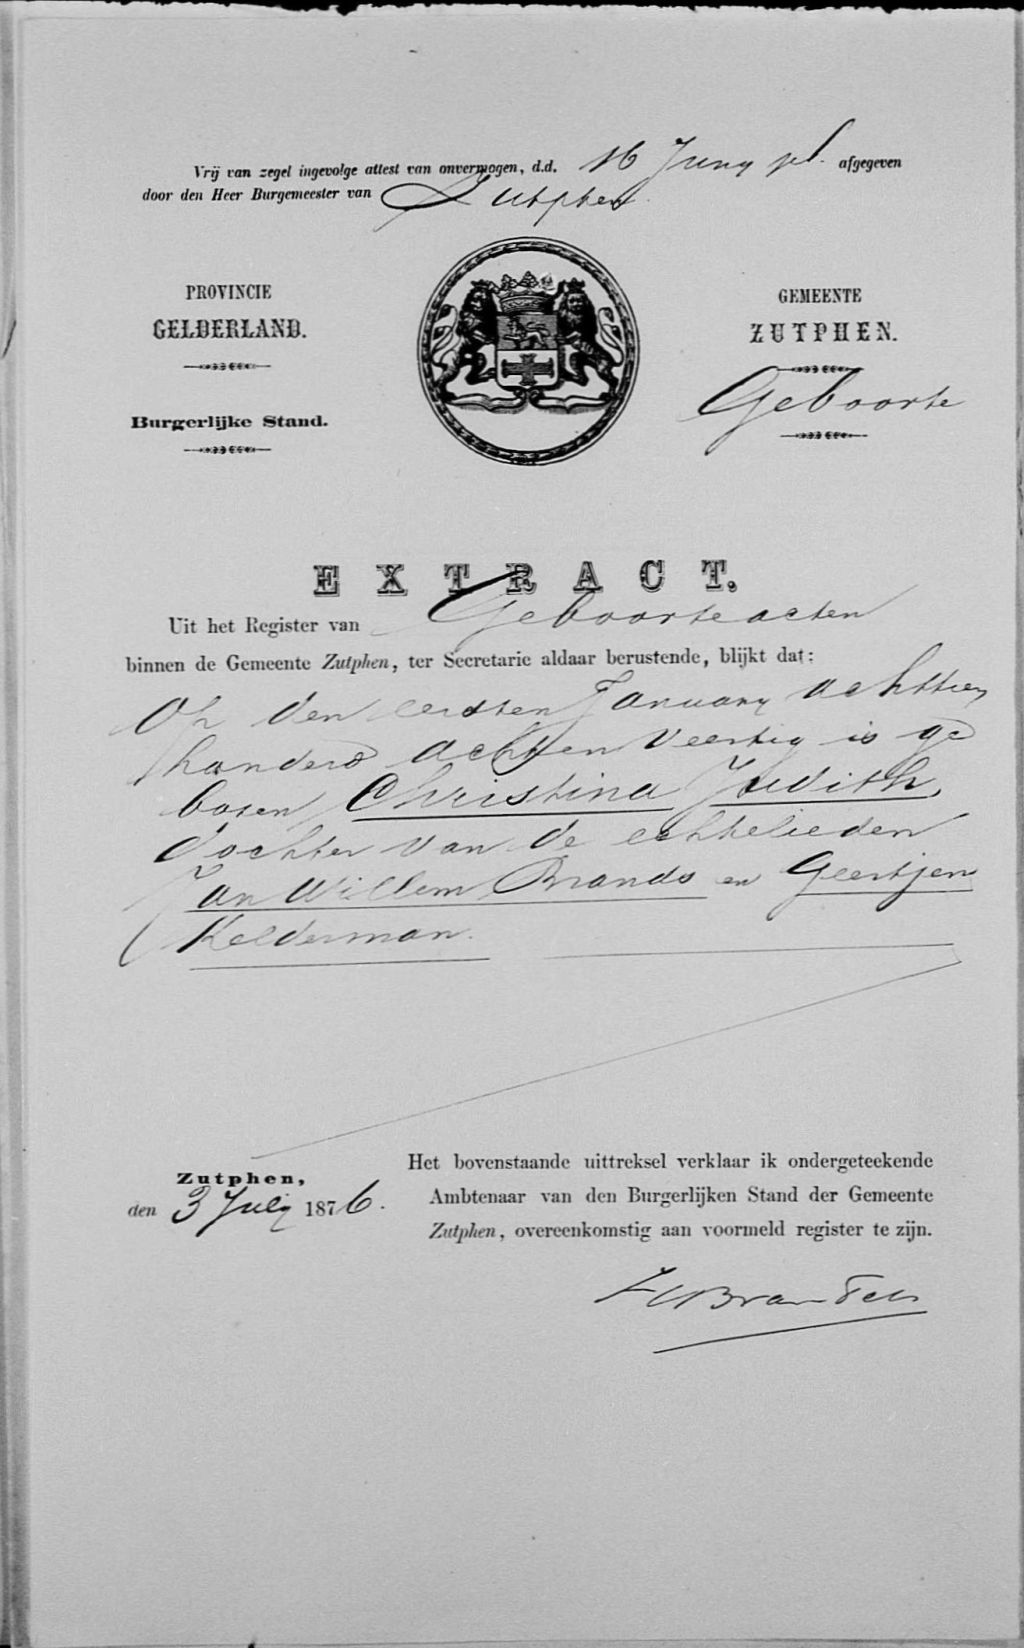 Vrij van zegel ingevolge attest van onvermogen, d.d. 16 Juny jl. afgegeven
door den Heer Burgemeester van Zutphen.
PROVINCIE
GELDERLAND.
Burgerlijke Stand.
GEMEENTE
ZUTPHEN.
Geboorte
EXTRACT.
Uit het Register van Geboorteacten
binnen de Gemeente Zutphen, ter Secretarie aldaar berustende, blijkt dat:
Op den eersten January achttien
honderd achtenveertig is ge
boren Christina Judith,
dochter van de echtelieden
Jan Willem Brands en Geertjen
Kelderman.
Zutphen,
den 3 July 1876.
Het bovenstaande uittreksel verklaar ik ondergeteekende
Ambtenaar van den Burgerlijken Stand der Gemeente
Zutphen, overeenkomstig aan voormeld register te zijn.